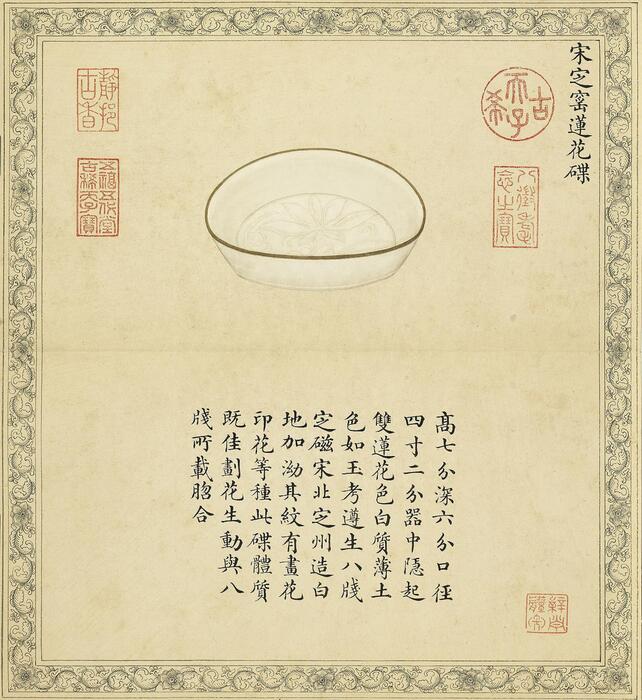 宋㝎窰蓮花碟
古希天子
八徵耄念之寶
髙七分深六分口徑
四寸二分器中隱起
雙蓮花色白質薄土
色如玉考遵生八牋
㝎磁宋北㝎州造白
地加泑其紋有畫花
印花等種此碟體質
既佳劃花生動與八
牋所載脗合
靜挹古香
五福五代堂古稀天子寶